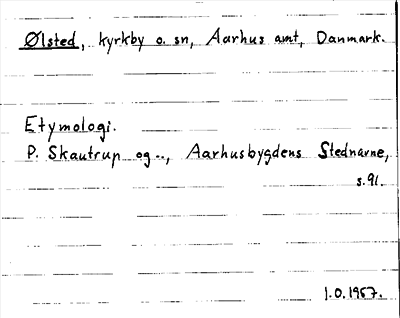 Ølsted, kyrkby o. sn, Aarhus amt, Danmark.
Etymologi.
P. Skautrup og .., Aarhusbygdens Stednavne,
s.91.
1.0.1957.